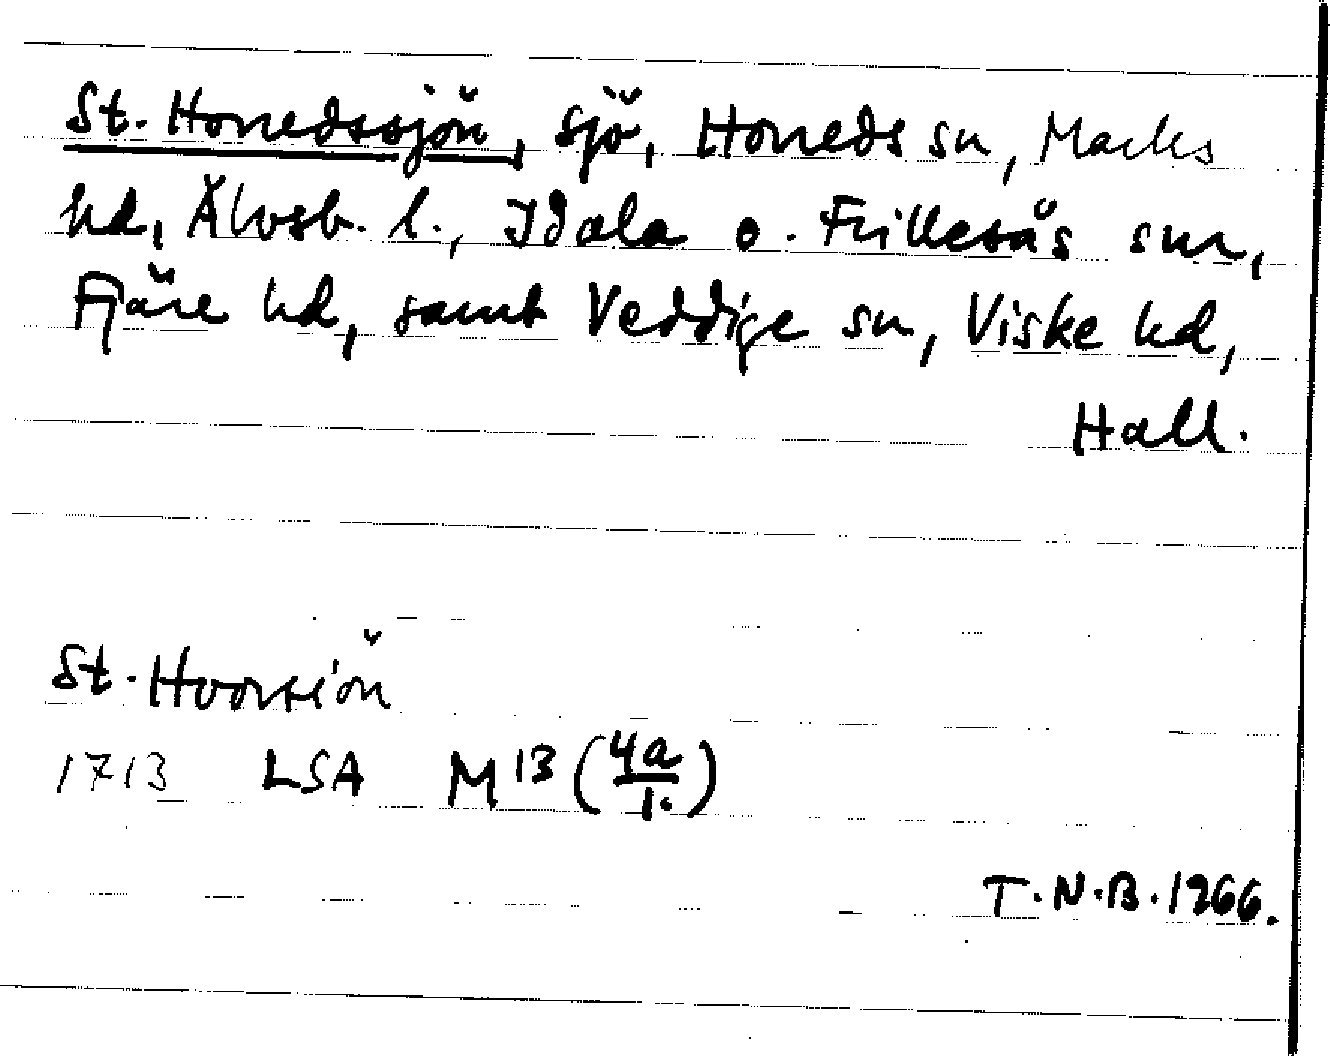 St. Horredssjön, sjö, Horreds sn, Marks
hd, Älvsb. l., Idala o. Frillesås snr,
Fjäre hd, samt Veddige sn, Viske hd,
Hall.
St. Hoorsiön
1713 LSA M 13 (4a/1.)
T.N.B. 1966.